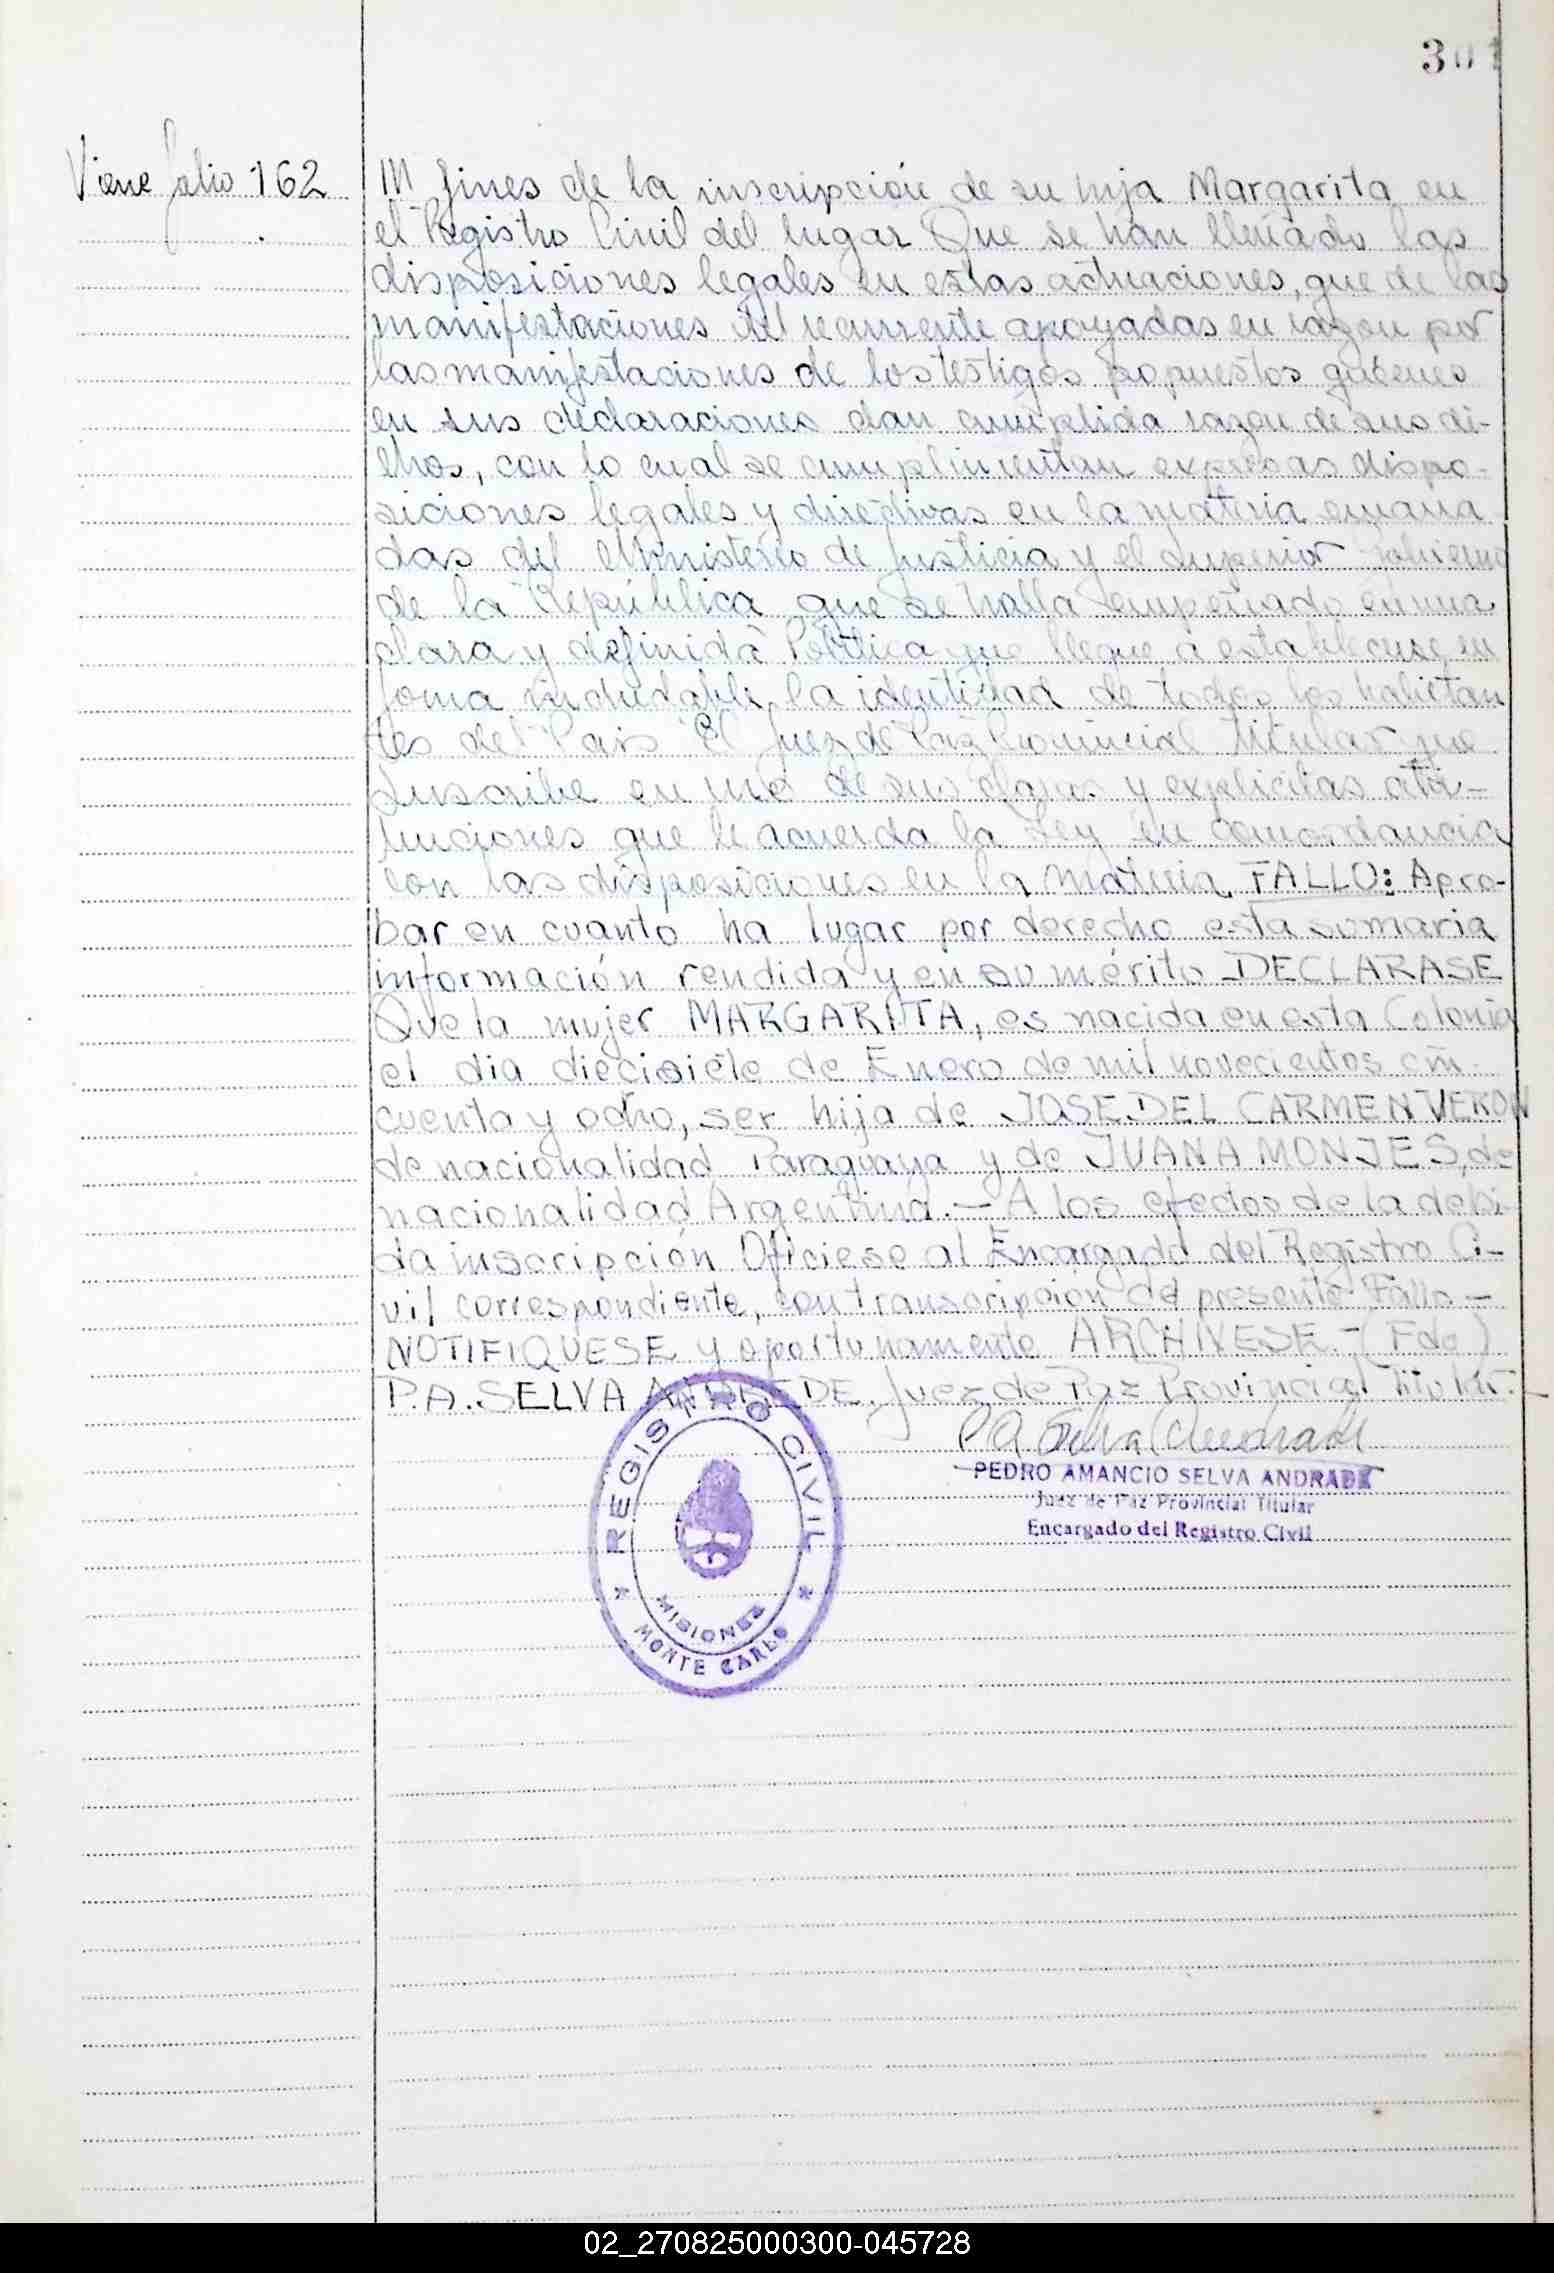 301
Viene folio 162
/// fines de la inscripción de su hija Margarita en
el Registro Civil del lugar Que se han llenado las
disposiciones legales en estas actuaciones, que de las
manifestaciones del recurrente apoyadas en razon por
las manifestaciones de los testigos propuestos quienes
en sus declaraciones dan cumplida razon de sus di-
chos, con lo cual se cumplimentan expresas dispo-
siciones legales y directivas en la materia emana
das del Ministerio de Justicia y el Superior Gobierno
de la República que se halla empeñado en una
clara y definida Política que llegue a establecerse en
forma indudable la identidad de todos los habitan
tes del País El Juez de Paz Provincial Titular que
suscribe en uso de sus claras y explicitas atri-
buciones que le acuerda la Ley en concordancia
con las disposiciones en la materia FALLO: Apro-
bar en cuanto ha lugar por derecho esta sumaria
información rendida y en su mérito DECLARASE
Que la mujer MARGARITA, es nacida en esta Colonia
el dia diecisiete de Enero de mil novecientos cin-
cuenta y ocho, ser hija de JOSE DEL CARMEN VERON
de nacionalidad Paraguaya y de JUANA MONJES, de
nacionalidad Argentina.- A los efectos de la debi-
da inscripción Oficiese al Encargado del Registro Ci-
vil correspondiente, con transcripción del presente Fallo -
NOTIFIQUESE y oportunamente ARCHIVESE.- (Fdo)
P.A. SELVA ANDRADE. Juez de Paz Provincial Titular.-
P A Selva Andrade
PEDRO AMANCIO SELVA ANDRADE
Juez de Paz Provincial Titular
Encargado del Registro Civil
REGISTRO CIVIL
MISIONES
MONTE CARLO
02_270825000300-045728